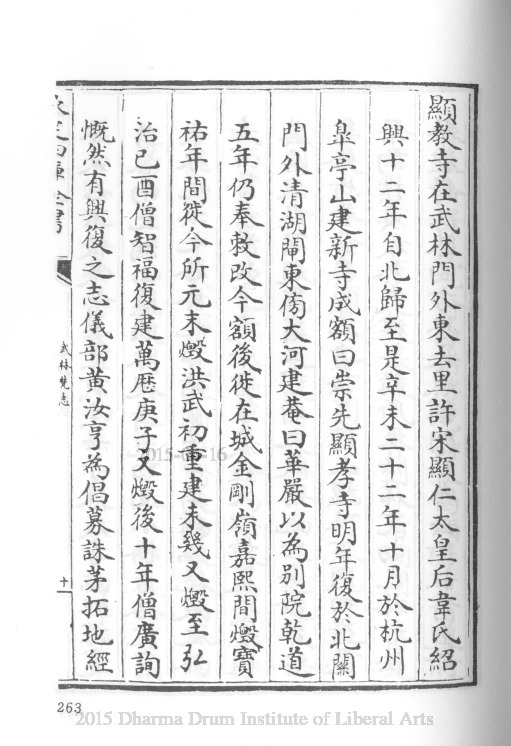 顯教寺在武林門外東去里許宋顯仁太皇后韋氏紹
興十二年自北歸至是辛未二十二年十月於杭州
臯亭山建新寺成額曰崇先顯孝寺明年復於北關
門外清湖閘東傍大河建菴曰華嚴以為別院乾道
五年仍奉敕改今額後徙在城金剛嶺嘉熙間燬寶
祐年間徙今所元末燬洪武初重建未幾又燬至弘
治己酉僧智福復建萬歷庚子又燬後十年僧廣詢
慨然有興復之志儀部黃汝亨為倡募誅茅拓地經
欽定四庫全書
武林梵志
十
2015-03-16
263
2015 Dharma Drum Institute of Liberal Arts